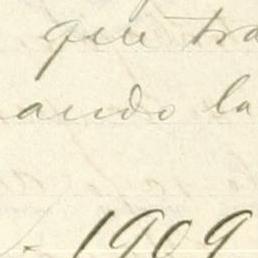 que tra
ando la
1909